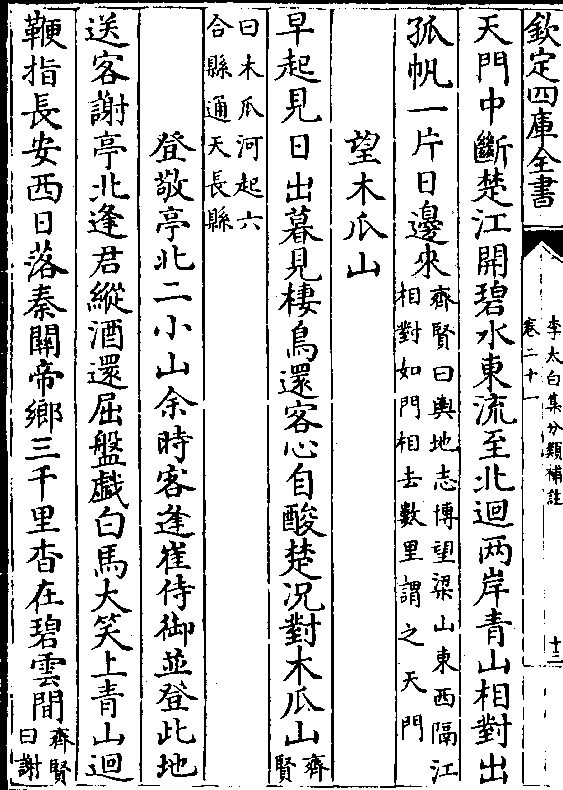 欽定四庫全書
李太白集分類補註
卷二十一
十二
天門中斷楚江開碧水東流至北迴两岸青山相對出
孤帆一片日邊來
齊賢曰輿地志博望梁山東西隔江
相對如門相去數里謂之天門
望木瓜山
早起見日出暮見棲鳥還客心自酸楚况對木瓜山
齊賢
曰木瓜河起六
合縣通天長縣
登敬亭北二小山余時客逢崔侍御並登此地
送客謝亭北逢君縱酒還屈盤戯白馬大笑上青山迴
鞭指長安西日落秦關帝鄉三千里杳在碧雲間
齊賢
曰謝